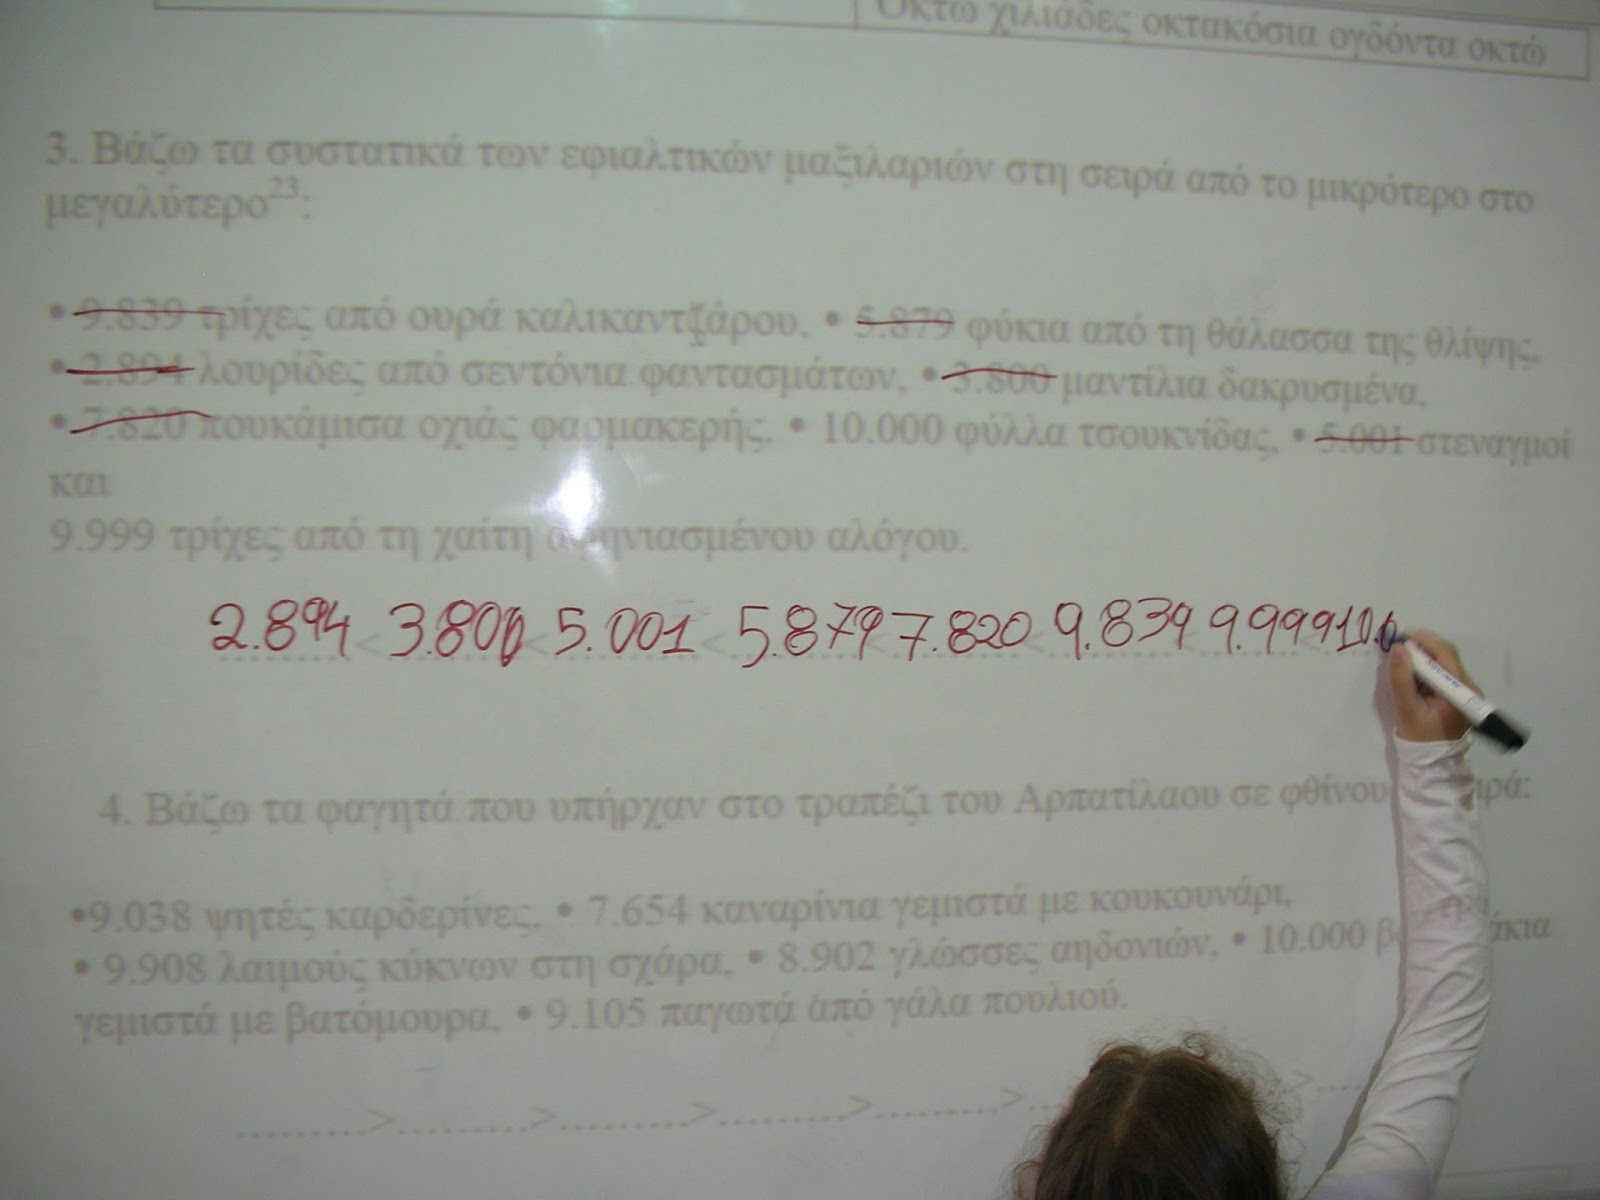 Οκτώ χιλιάδες οκτακόσια ογδόντα οκτώ
3. Βάζω τα συστατικά των εφιαλτικών μαξιλαριών στη σειρά από το μικρότερο στο
μεγαλύτερο23:
• 9.839 τρίχες από ουρά καλικαντζάρου, • 5.879 φύκια από τη θάλασσα της θλίψης,
• 2.894 λουρίδες από σεντόνια φαντασμάτων, • 3.800 μαντίλια δακρυσμένα,
• 7.820 πουκάμισα οχιάς φαρμακερής, • 10.000 φύλλα τσουκνίδας, • 5.001 στεναγμοί
και
9.999 τρίχες από τη χαίτη αφηνιασμένου αλόγου.
2.894 < 3.800 < 5.001 < 5.879 7.820 < 9.839 9.999 10.0
4. Βάζω τα φαγητά που υπήρχαν στο τραπέζι του Αρπατίλαου σε φθίνου ιρά:
•9.038 ψητές καρδερίνες, • 7.654 καναρίνια γεμιστά με κουκουνάρι,
• 9.908 λαιμούς κύκνων στη σχάρα, • 8.902 γλώσσες αηδονιών, • 10.000 β άκια
γεμιστά με βατόμουρα, • 9.105 παγωτά από γάλα πουλιού.
..........>..........>..........>..........>..........>.. >....